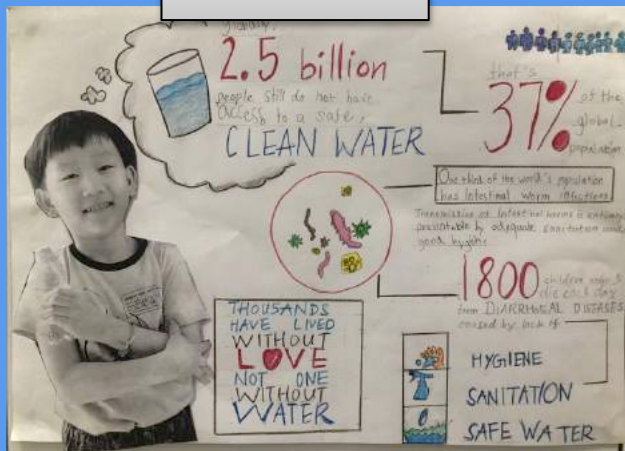 globally,
2.5 billion
people still do not have
access to a safe,
CLEAN WATER
that's
37%
of the
global
population
One third of the world's population
has intestinal worm infections
Transmission of intestinal worms is entirely
preventable by adequate sanitation and
good hygiene
1800
children under 5
die each day
from DIARRHOEAL DISEASES
caused by lack of
HYGIENE
SANITATION
SAFE WATER
THOUSANDS
HAVE LIVED
WITHOUT
LOVE
NOT ONE
WITHOUT
WATER